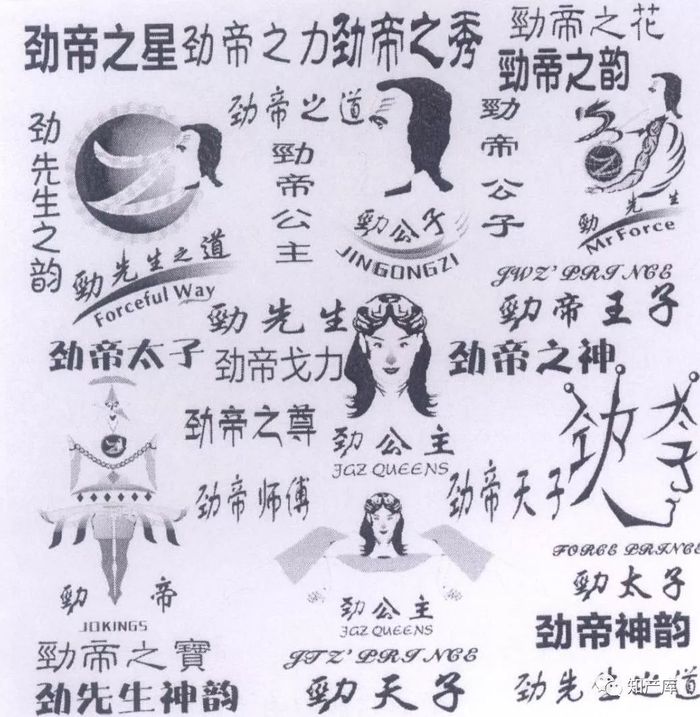 劲帝之星
劲帝之力
劲帝之秀
勁帝之花
勁帝之韵
劲先生之韵
劲帝之道
勁帝公主
勁帝公子
勁公子
JINGONGZI
勁先生
Mr Force
勁先生之道
Forceful Way
JWZ' PRINCE
勁帝王子
勁先生
劲帝太子
劲帝戈力
劲帝之神
劲帝之尊
劲公主
JGZ QUEENS
劲太子
劲帝师傅
劲帝天子
FORCE PRINCE
勁帝
JOKINGS
勁公主
JGZ QUEENS
勁太子
劲帝神韵
勁帝之寶
JTZ' PRINCE
劲先生神韵
勁天子
劲先生之道
知产库